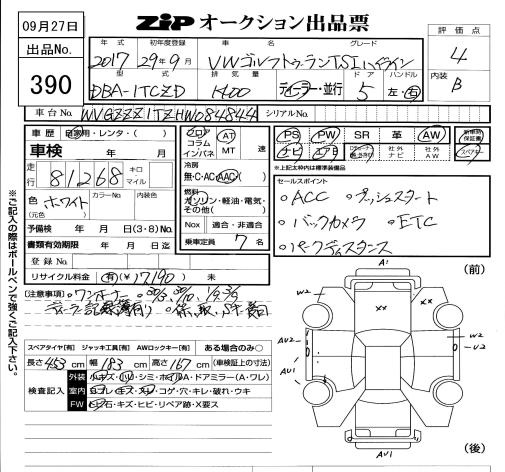 09月27日
ZiP オークション出品票
出品No.
390
年式 初年度登録 車名 グレード
2017 29年9月 VWゴルフトゥーランTSIハイライン
型式 排気量 ドア ハンドル
DBA-1TCZD 1400 ディーラー・並行 5 左・右
評価点
4
内装
B
車台No. WVGZZZ1TZHW084844 シリアルNo.
車歴 自家用・レンタ( )
車検 年 月
走行 81268 キロ マイル
色 ホワイト (元色) カラーNo. 内装色
予備検 年 月 日(3・8)No.
書類有効期限 年 月 日迄
登録No.
リサイクル料金 有(¥17,190) 未
フロア コラム インパネ AT MT 速
冷房
無・C・AC・AAC
燃料
ガソリン・軽油・電気・その他( )
Nox 適合・非適合
乗車定員 7 名
PS PW SR 革 AW 新車時保証書
ナビ エアB 社外ナビ 社外AW
※上記太ワク枠は標準装備品
セールスポイント
○ACC ○プッシュスタート
○バックカメラ ○ETC
○パークディスタンス
(注意事項) ○ワンオーナー
ディーラー記録簿有り ○保、取、
スペアタイヤ[有] ジャッキ工具[有] AWロックキー[有] ある場合のみ○
長さ 453 cm 幅 183 cm 高さ 167 cm (車検証上の寸法)
検査記入
外装 小キズ・小凹・シミ・ホイルA・ドアミラー(A・ワレ)
室内 ヨゴレ・キズ・スレ・コゲ・穴・キレ・破れ・ウキ
FW 飛石・キズ・ヒビ・リペア跡・X要ス
※ご記入の際はボールペンで強くご記入下さい。
A1
(前)
W2
XX
XX
W2
U2
AU2
AU1
AU1
(後)